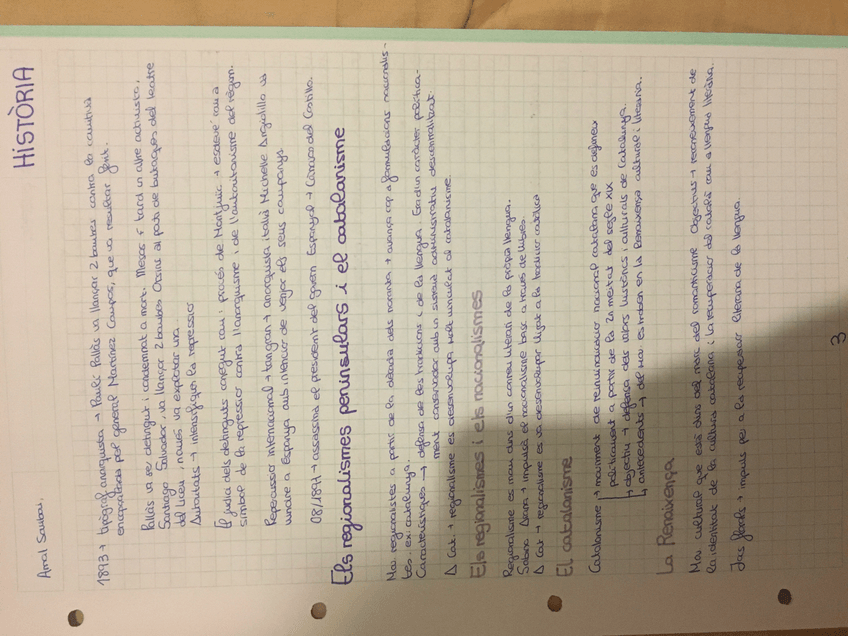 HISTÒRIA
1893 → tipògraf anarquista → Paulí Pallàs va llançar 2 bombes contra la comitiva
encapçalada pel general Martínez Campos, que va resultar ferit.
Pallàs va ser detingut i condemnat a mort. Mesos + tard un altre activista,
Santiago Salvador, va llançar 2 bombes Orsini al pati de butaques del teatre
del Liceu, només va explotar una.
Autoritats → intensifiquen la repressió
El judici dels detinguts conegut com: procés de Montjuïc → esdevé com a
símbol de la repressió contra l'anarquisme i de l'autoritarisme del règim.
Repercussió internacional → tan gran → anarquista italià Michelle Angiolillo va
vindre a Espanya amb intenció de venjar els seus companys
08/1897 → assassina el president del govern Espanyol → Cánovas del Castillo.
Els regionalismes peninsulars i el catalanisme
Mov. regionalistes a partir de la dècada dels noranta → avança cap a formulacions nacionalis-
tes. ex: catalunya.
Característiques → defensa de les tradicions i de la llengua. Era d'un caràcter política-
ment conservador amb un sistema administratiu descentralitzat.
Δ Cat. → regionalisme es desenvolupa molt vinculat al catalanisme.
Els regionalismes i els nacionalismes
Regionalisme es mou dins d'un correu literari de la pròpia llengua.
Sabino Arana → impulsà el nacionalisme basc a través de
Δ Cat → regionalisme es va desenvolupar lligat a la tradició catòlica
El catalanisme
Catalanisme → moviment de reivindicació nacional catalana que es defineix
políticament a partir de la 2n meitat del segle XIX
↳ objectiu → defensa dels valors històrics i culturals de Catalunya.
↳ antecedents → del mov. es troben en la Renaixença cultural i literària.
La Renaixença
Mov. cultural que està dins del marc del romanticisme. Objectius → reconeixement de
la identitat de la cultura catalana i la recuperació del català com a llengua literària.
Jocs florals → impuls per a la recuperació literària de la llengua.
3